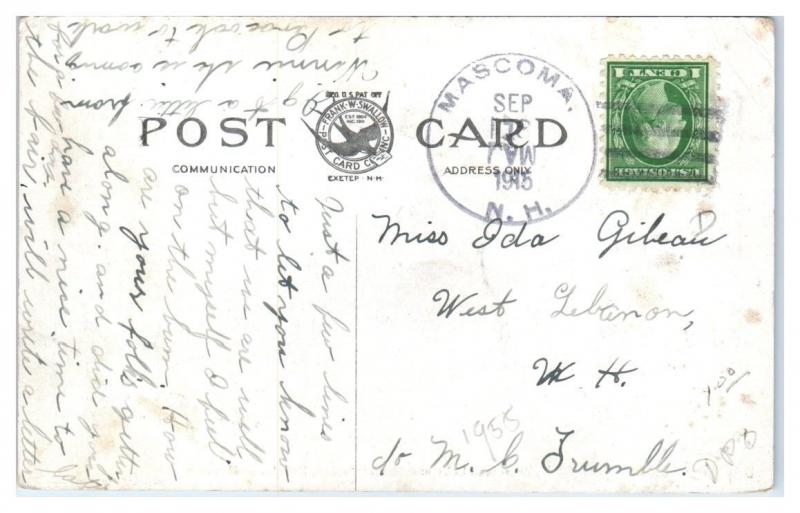 POST CARD
REG. U.S. PAT. OFF.
FRANK·W·SWALLOW
EST 1904
INC. 1911
POST CARD CO. INC.
EXETER·N·H·
COMMUNICATION
ADDRESS ONLY
MASCOMA,
SEP
1915
N. H.
1 CENT 1
U.S. POSTAGE
Miss Ida Gibeau
West Lebanon,
N. H.
c/o M. C. Trumble.
1955
1.00
DPO
Just a few lines
to let you know
that we are well
but myself I feel
on the bum. How
are your folks getting
along. and did you
have a nice time to
the fair, will write a letter
a letter from
Nonnie she is coming
to work